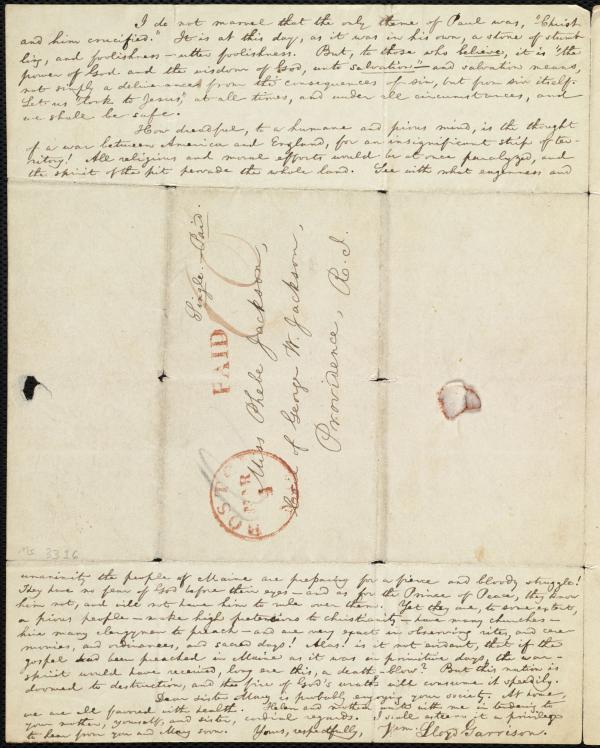 I do not marvel that the only theme of Paul was, "Christ
and him crucified." It is at this day, as it was in his own, a stone of stumb-
ling, and foolishness—utter foolishness. But, to those who believe, it is "the
power of God and the wisdom of God, unto salvation"—and salvation means,
not simply a deliverance from the consequences of sin, but from sin itself.
Let us "look to Jesus," at all times, and under all circumstances, and
we shall be safe.
How dreadful, to a humane and pious mind, is the thought
of a war between America and England, for an insignificant strip of ter-
ritory! All religious and moral efforts would be at once paralyzed, and
the spirit of the pit pervade the whole land. See with what eagerness and
Single. Paid.
PAID
Miss Phebe Jackson,
Care of George W. Jackson,
Providence, R. I.
BOSTON
MAR
1
Ms 3316
unanimity the people of Maine are preparing for a fierce and bloody struggle!
They have no fear of God before their eyes—and as for the Prince of Peace, they know
him not, and will not have him to rule over them. Yet they are, to some extent,
a pious people—make high pretensions to christianity—have many churches—
hire many clergymen to preach—and are very exact in observing rites, and cere-
monies, and ordinances, and sacred days! Alas! is it not evident, that if the
gospel had been preached in Maine as it was in primitive days, the war-
spirit would have received, long ere this, a death-blow? But this nation is
doomed to destruction, and the fire of God's wrath will consume it speedily.
Dear sister Mary is probably enjoying your society. At home,
we are all favored with health. Helen and mother unite with me in tendering to
your mother, yourself, and sister, cordial regards. I shall esteem it a privilege
to hear from you and Mary soon. Yours, respectfully, Wm. Lloyd Garrison.